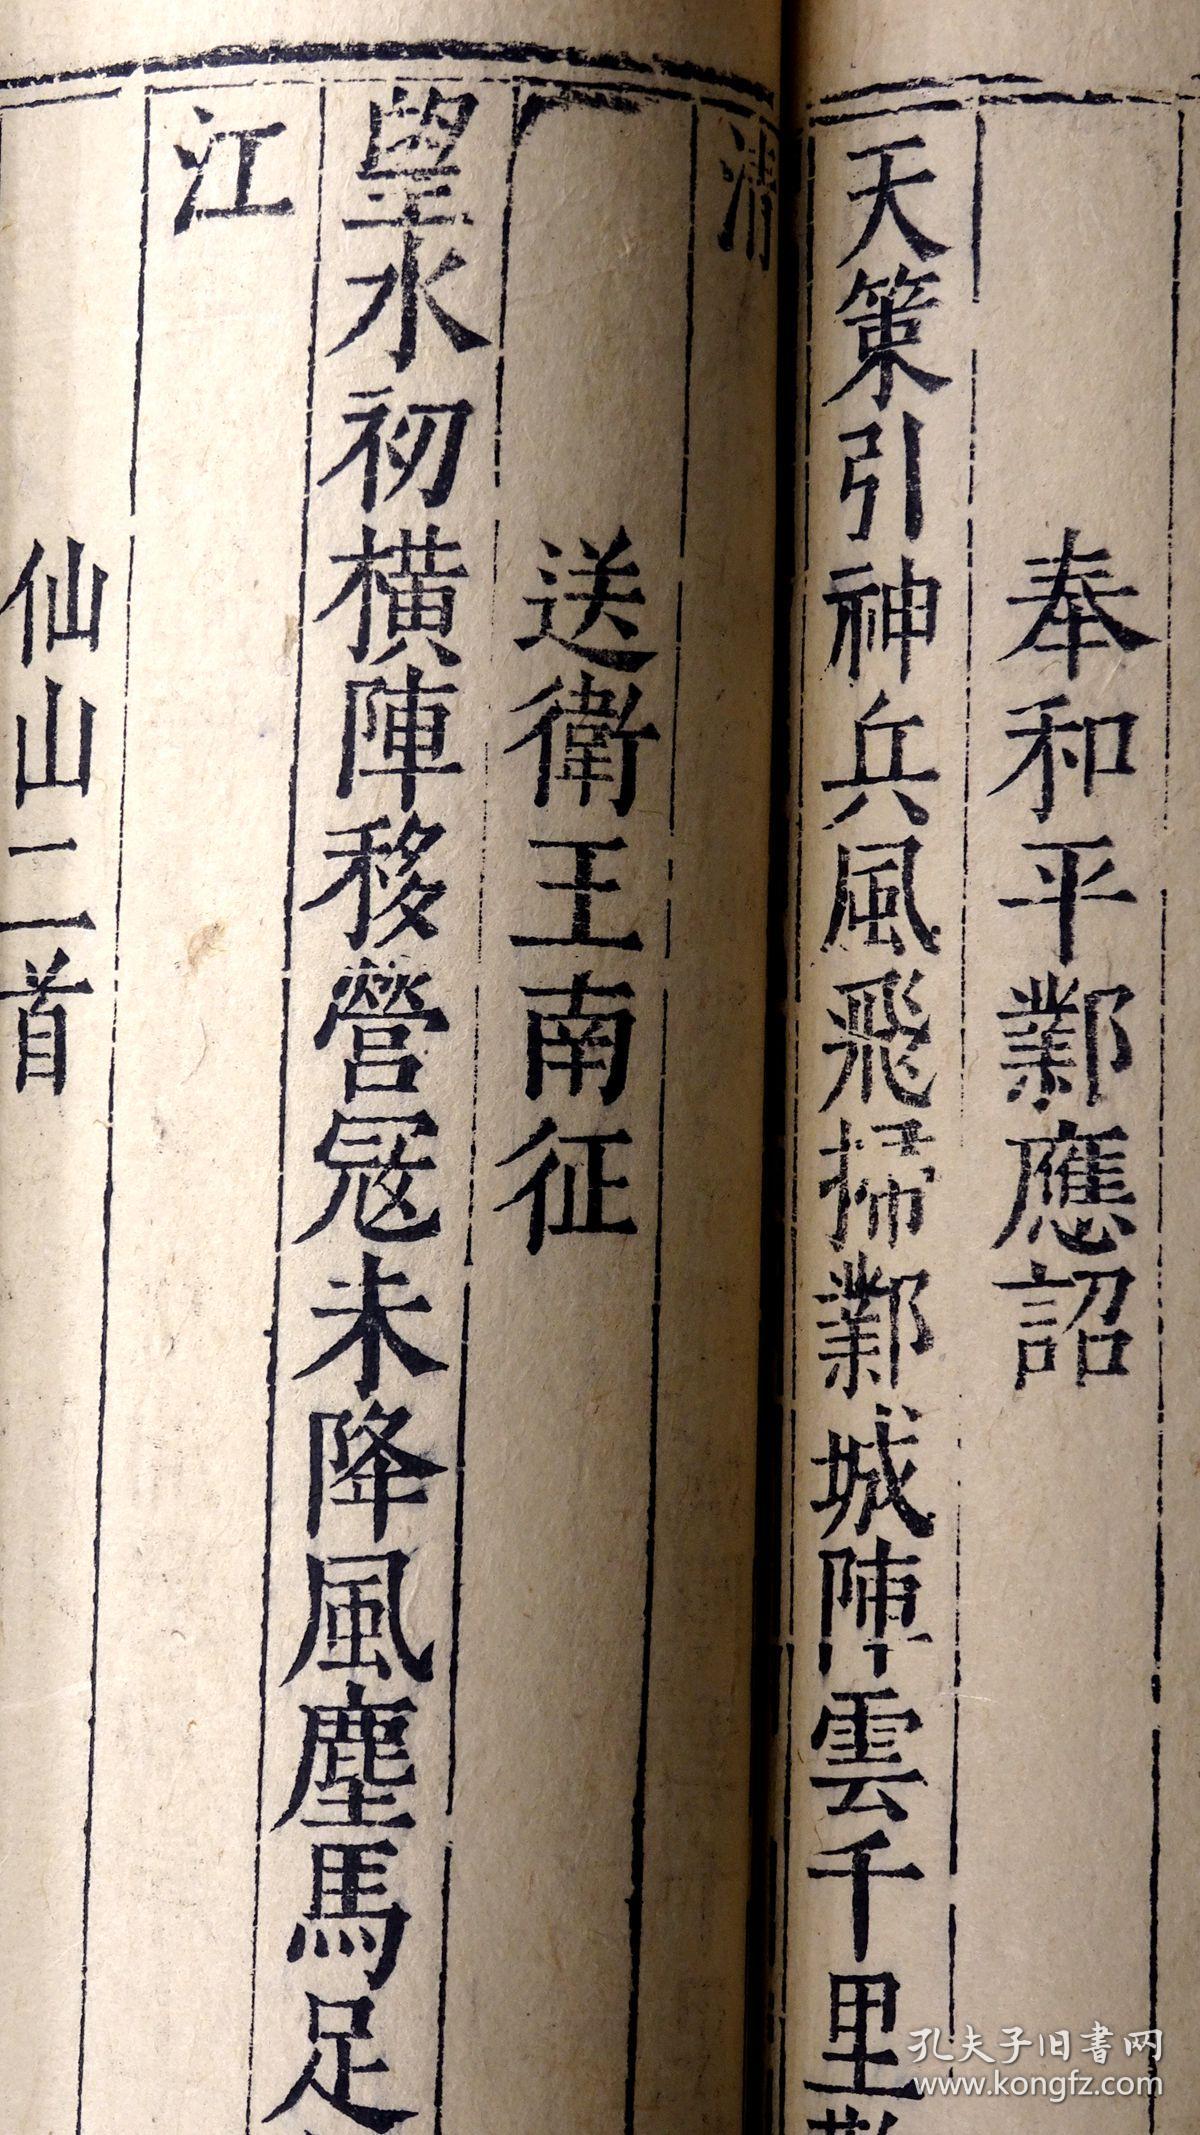 奉和平鄴應詔
天策引神兵風飛掃鄴城陣雲千里
清
送衛王南征
望水初橫陣移營寇未降風塵馬足
江
仙山二首
孔夫子旧书网
www.kongfz.com